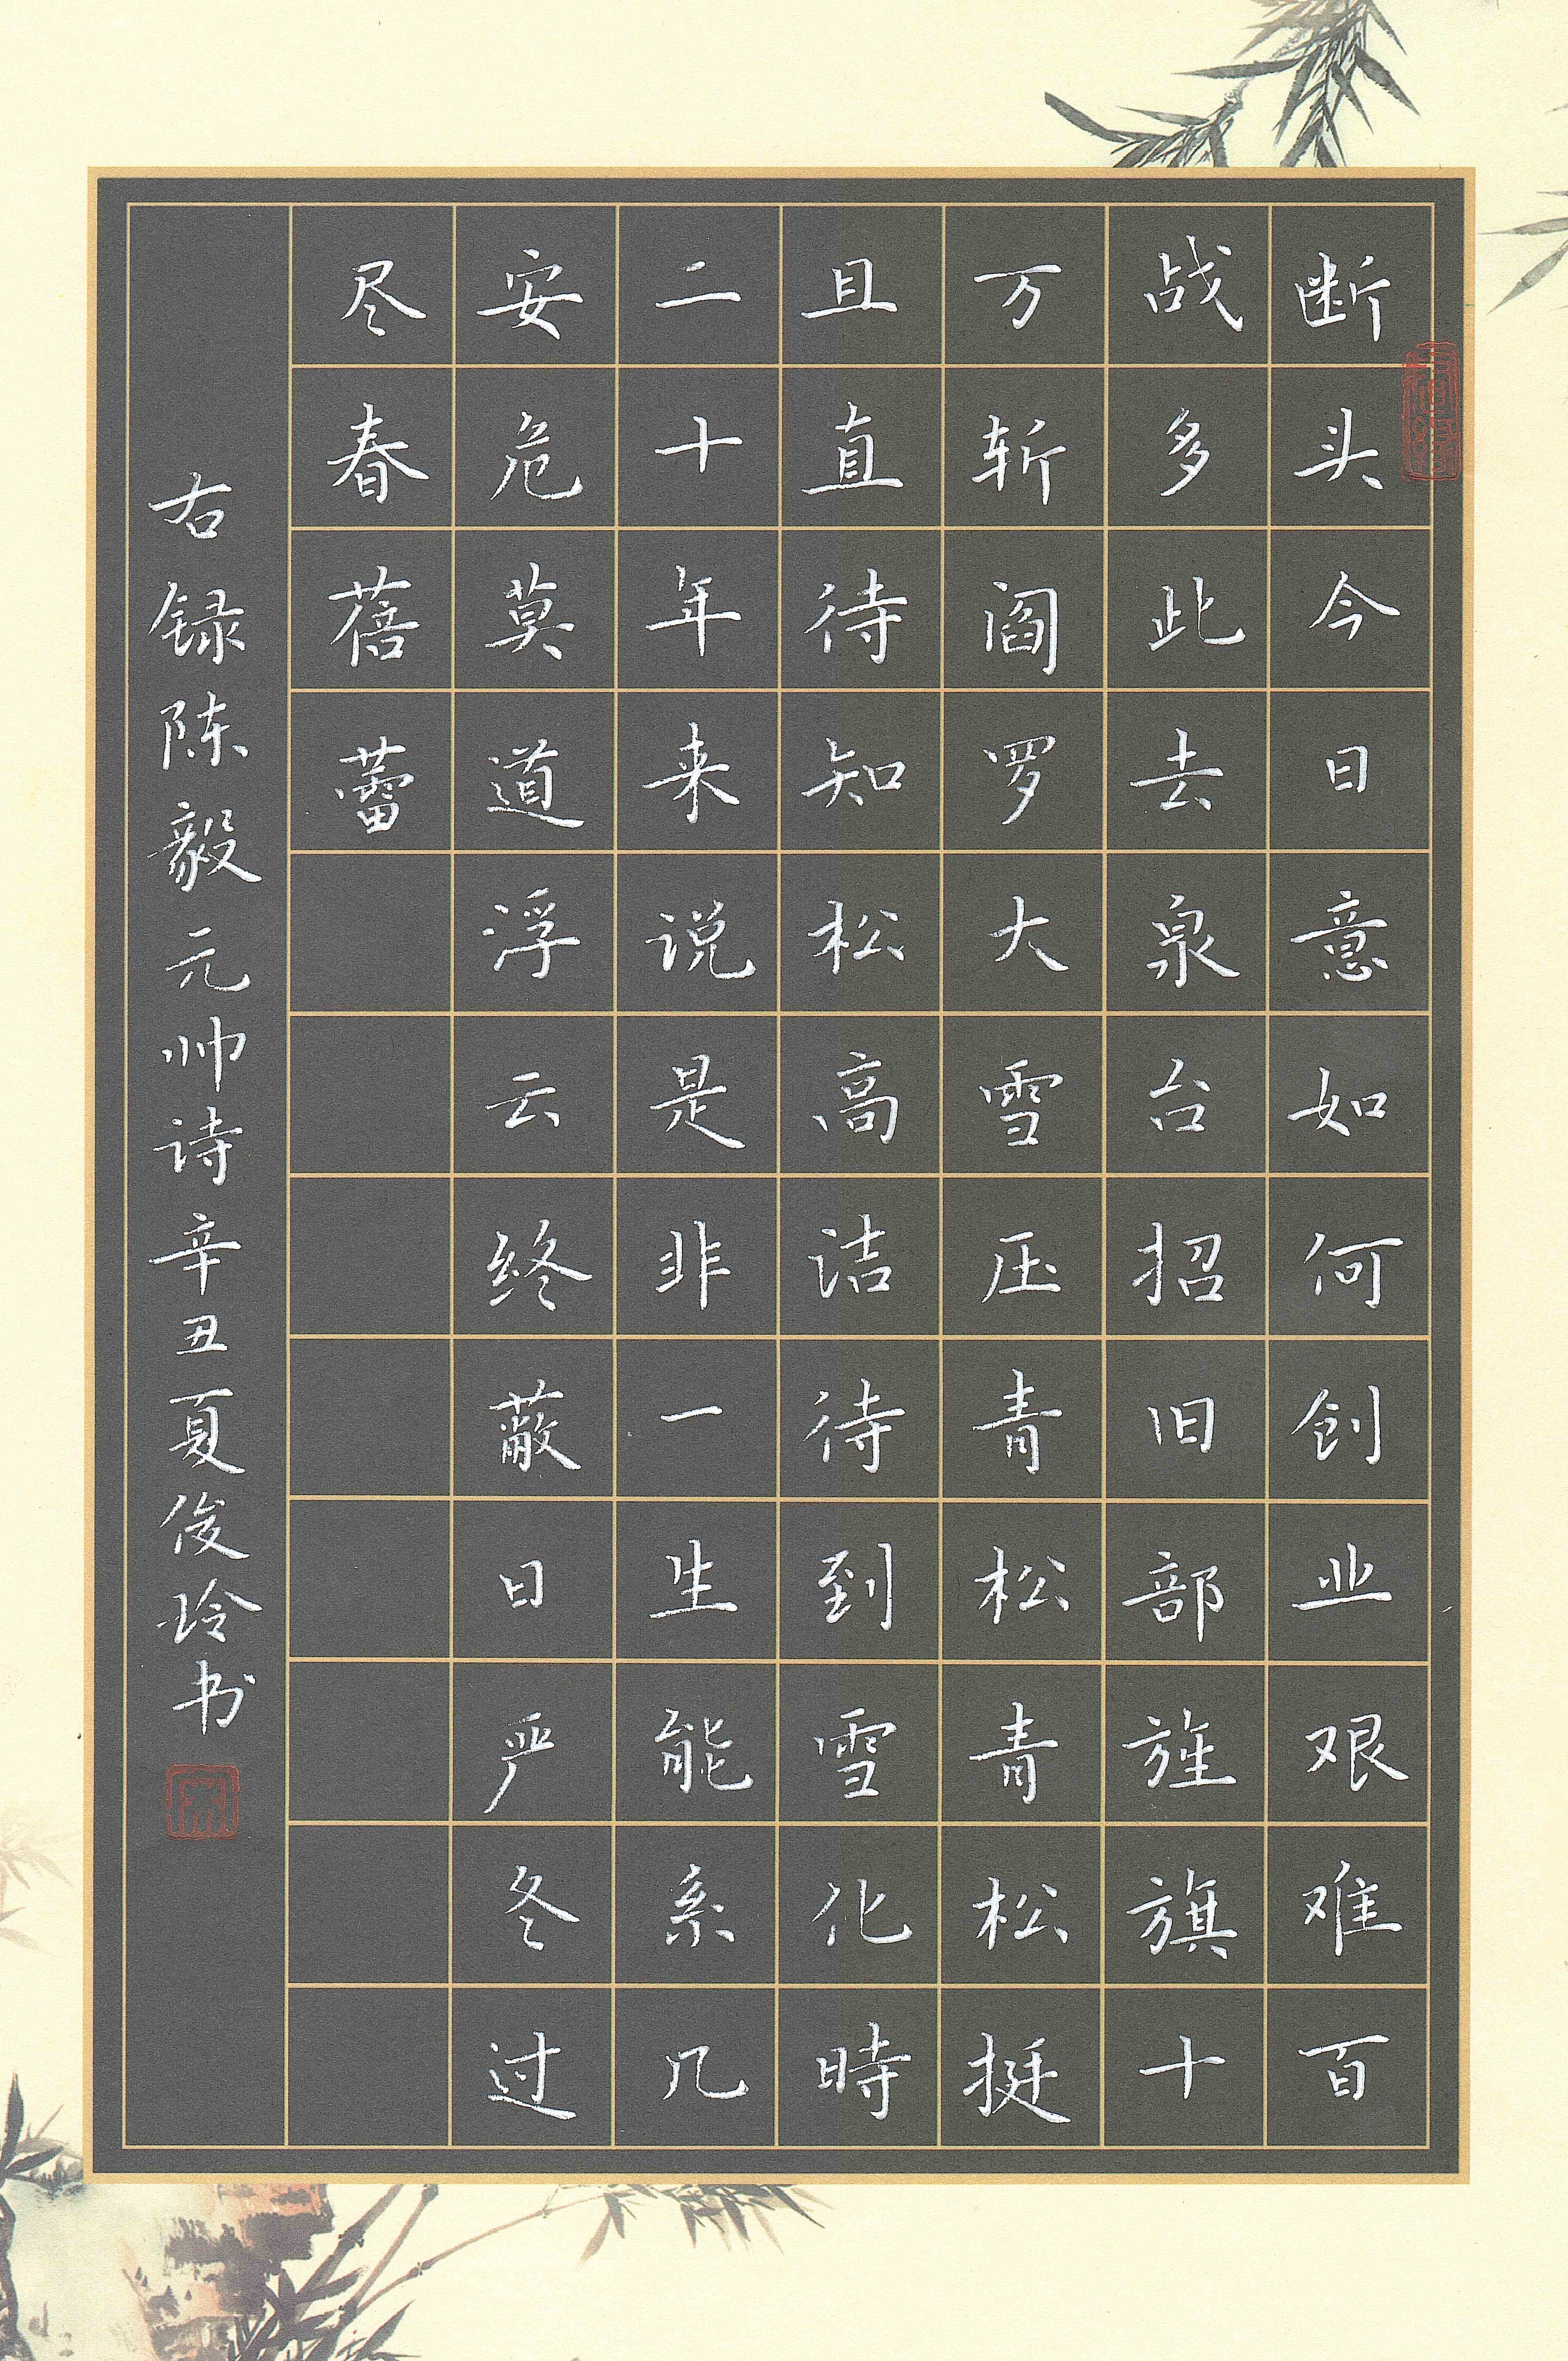 断头今日意如何创业艰难百
战多此去泉台招旧部旌旗十
万斩阎罗大雪压青松青松挺
且直待知松高洁待到雪化時
二十年来说是非一生能系几
安危莫道浮云终蔽日严冬过
尽春蓓蕾
右録陈毅元帅诗辛丑夏俊玲书